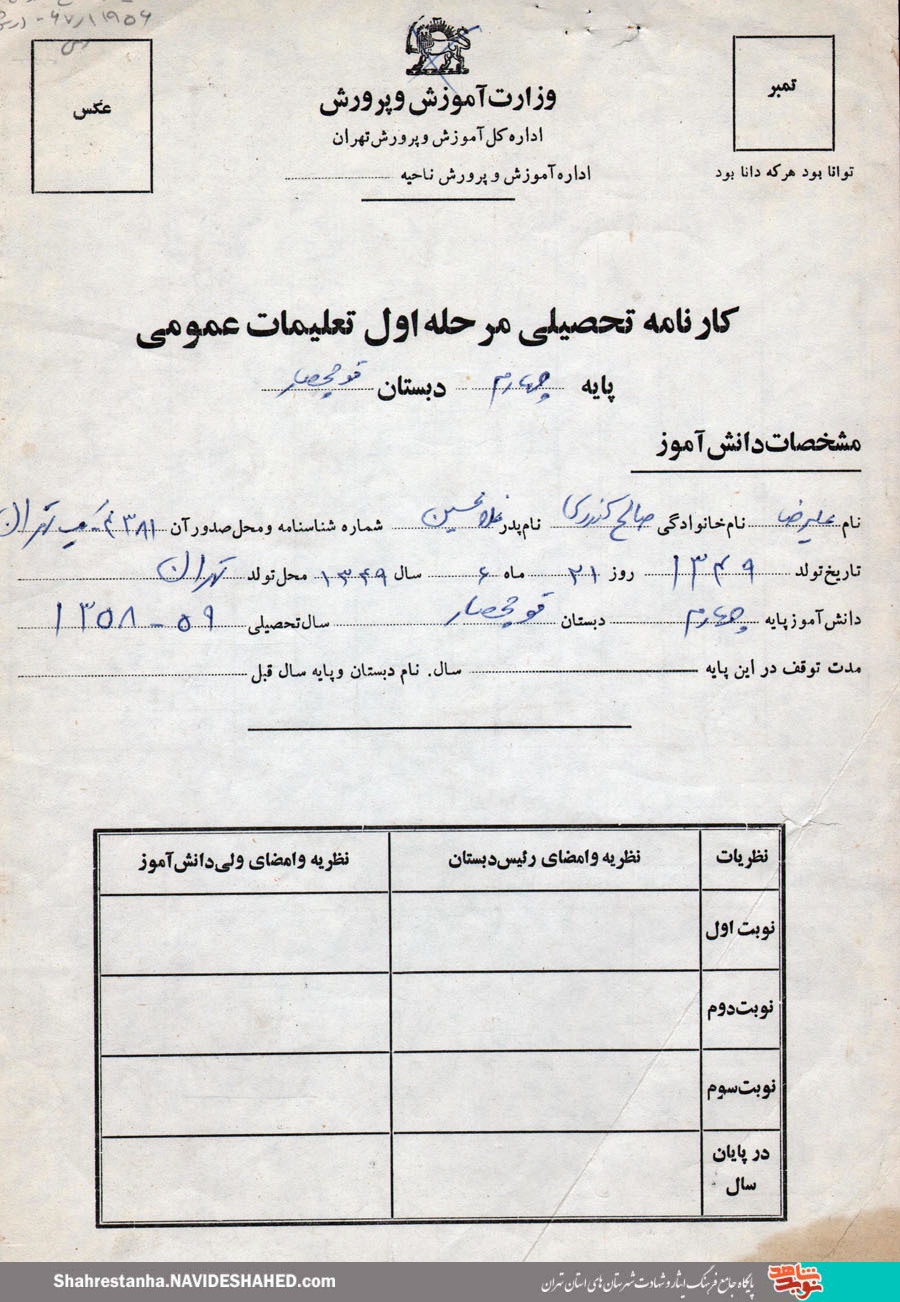 ۱۱۹۵۶
تمبر
توانا بود هرکه دانا بود
وزارت آموزش و پرورش
اداره کل آموزش و پرورش تهران
اداره آموزش و پرورش ناحیه
عکس
کارنامه تحصیلی مرحله اول تعلیمات عمومی
پایه چهارم دبستان قوچحصار
مشخصات دانش آموز
نام علیرضا نام خانوادگی صالح کندری نام پدر غلامحسین شماره شناسنامه و محل صدور آن ۴۳۸۱ تهران
تاریخ تولد ۱۳۴۹ روز ۲۱ ماه ۶ سال ۱۳۴۹ محل تولد تهران
دانش آموز پایه چهارم دبستان قوچحصار سال تحصیلی ۵۹ - ۱۳۵۸
مدت توقف در این پایه سال. نام دبستان و پایه سال قبل
نظریات نظریه و امضای رئیس دبستان نظریه و امضای ولی دانش آموز
نوبت اول
نوبت دوم
نوبت سوم
در پایان
سال
نوید شاهد پایگاه جامع فرهنگ ایثار و شهادت شهرستان های استان تهران Shahrestanha.NAVIDESHAHED.com